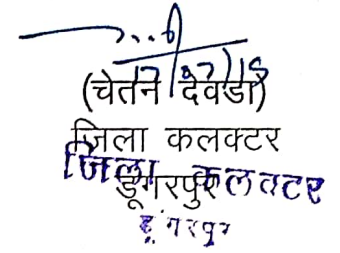 17/07/18
(चेतन देवडा)
जिला कलक्टर
डूंगरपुर
जिला कलक्टर
डूंगरपुर